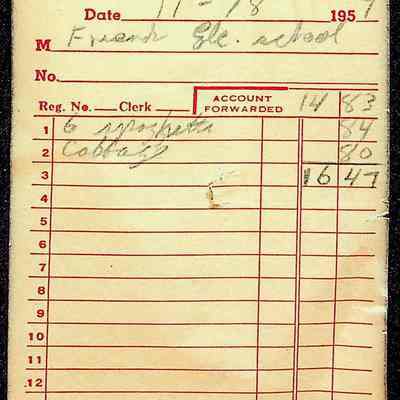 Date 11-18 1957
M Friend Ele. school
No.
Reg. No. Clerk ACCOUNT FORWARDED 14 83
1 6 spaghetti 84
2 Cabbage 80
3 16 47
4
5
6
7
8
9
10
11
12